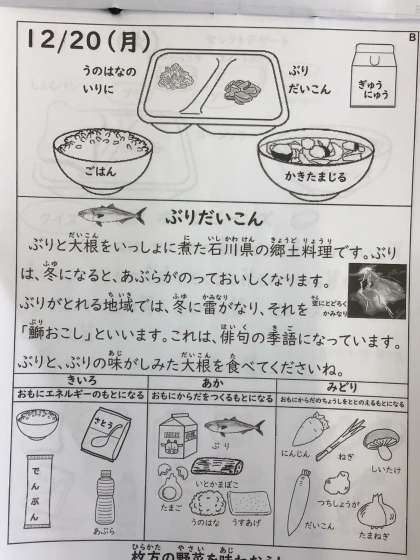 12/20(月)
B
うのはなの
いりに
ぶり
だいこん
ぎゅう
にゅう
ごはん
かきたまじる
ぶりだいこん
ぶりと大根をいっしょに煮た石川県の郷土料理です。ぶり
は、冬になると、あぶらがのっておいしくなります。
ぶりがとれる地域では、冬に雷がなり、それを
空にとどろく
かみなり
「鰤おこし」といいます。これは、俳句の季語になっています。
ぶりと、ぶりの味がしみた大根を食べてくださいね。
きいろ
おもにエネルギーのもとになる
さとう
でんぷん
あぶら
あか
おもにからだをつくるもとになる
ぶり
いとかまぼこ
たまご
うのはな
うすあげ
みどり
おもにからだのちょうしをととのえるもとになる
にんじん
ねぎ
しいたけ
つちしょうが
だいこん
たまねぎ
枚方の野菜を味わおう